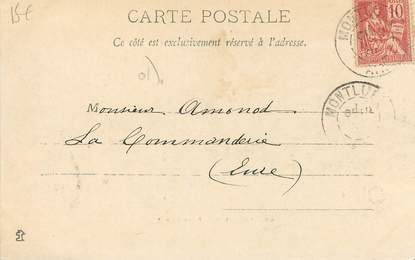 15€
CARTE POSTALE
10
Ce côté est exclusivement réservé à l'adresse.
MONTLU
Monsieur Amonod
MONTLU
La Commanderie
(Eure)